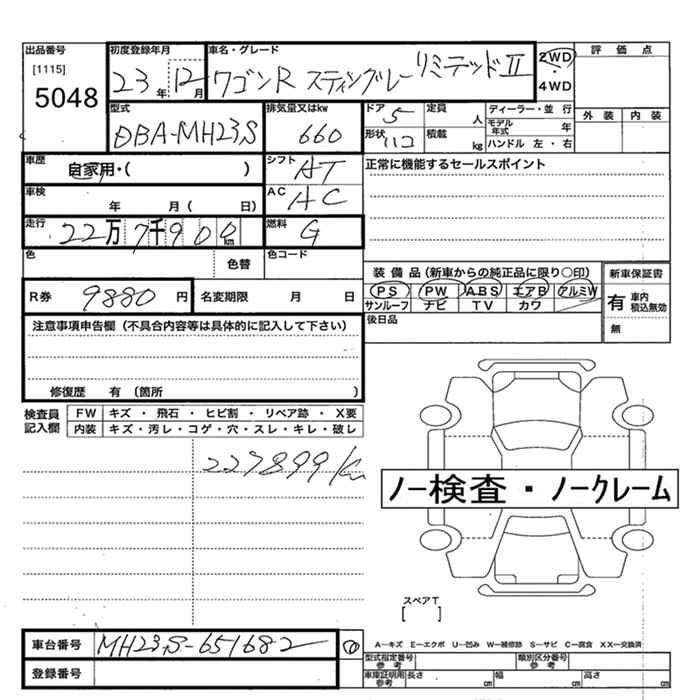 出品番号 初度登録年月 車名・グレード 評価点
[1115] 5048 23年12月 ワゴンR スティングレー リミテッドⅡ 2WD・4WD
型式 排気量又はkw ドア 5 定員 人 ディーラー・並行 外装 内装
DBA-MH23S 660 形状 ハコ 積載 kg モデル年式 年 ハンドル 左・右
車歴 自家用・( ) シフト AT 正常に機能するセールスポイント
車検 年 月 ( 日) AC AC
走行 22万7千900km 燃料 G
色 色替 色コード
装備品(新車からの純正品に限り○印) 新車保証書
PS PW ABS エアB アルミW 有 車内 積込無効
サンルーフ ナビ TV カワ 無
R券 9880円 名変期限 月 日 後日品
注意事項申告欄(不具合内容等は具体的に記入して下さい)
修復歴 有 〔箇所 〕
検査員記入欄 FW キズ・飛石・ヒビ割・リペア跡・X要
内装 キズ・汚レ・コゲ・穴・スレ・キレ・破レ
227899km
ノー検査・ノークレーム
スペアT
[ ]
車台番号 MH23S-651682
A―キズ E―エクボ U―凹み W―補修跡 S―サビ C―腐食 XX―交換済
登録番号 型式指定番号 参考 類別区分番号 参考
車庫証明用 参考 長さ cm 幅 cm 高さ cm